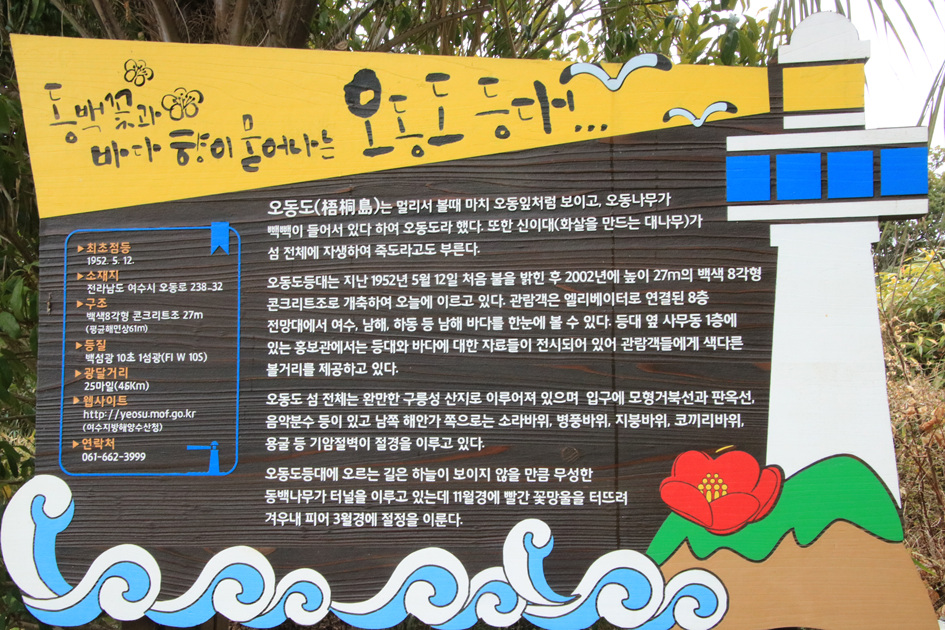 동백꽃과
바다 향이 묻어나는 오동도 등대!...
▶최초점등
1952. 5. 12.
▶소재지
전라남도 여수시 오동로 238-32
▶구조
백색8각형 콘크리트조 27m
(평균해면상61m)
▶등질
백섬광 10초 1섬광(FI W 10S)
▶광달거리
25마일(46Km)
▶웹사이트
http://yeosu.mof.go.kr
(여수지방해양수산청)
▶연락처
061-662-3999
오동도(梧桐島)는 멀리서 볼때 마치 오동잎처럼 보이고, 오동나무가
빽빽이 들어서 있다 하여 오동도라 했다. 또한 신이대(화살을 만드는 대나무)가
섬 전체에 자생하여 죽도라고도 부른다.
오동도등대는 지난 1952년 5월 12일 처음 불을 밝힌 후 2002년에 높이 27m의 백색 8각형
콘크리트조로 개축하여 오늘에 이르고 있다. 관람객은 엘리베이터로 연결된 8층
전망대에서 여수, 남해, 하동 등 남해 바다를 한눈에 볼 수 있다. 등대 옆 사무동 1층에
있는 홍보관에서는 등대와 바다에 대한 자료들이 전시되어 있어 관람객들에게 색다른
볼거리를 제공하고 있다.
오동도 섬 전체는 완만한 구릉성 산지로 이루어져 있으며 입구에 모형거북선과 판옥선,
음악분수 등이 있고 남쪽 해안가 쪽으로는 소라바위, 병풍바위, 지붕바위, 코끼리바위,
용굴 등 기암절벽이 절경을 이루고 있다.
오동도등대에 오르는 길은 하늘이 보이지 않을 만큼 무성한
동백나무가 터널을 이루고 있는데 11월경에 빨간 꽃망울을 터뜨려
겨우내 피어 3월경에 절정을 이룬다.